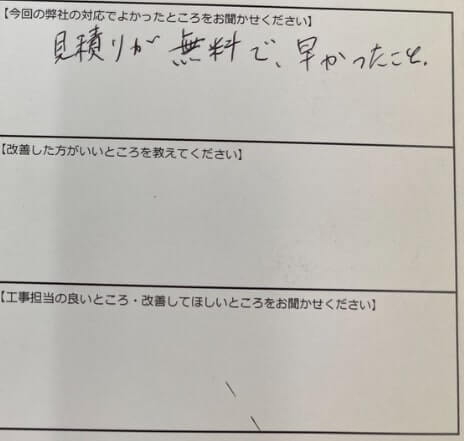 【今回の弊社の対応でよかったところをお聞かせください】
見積りが無料で、早かったこと。
【改善した方がいいところを教えてください】
【工事担当の良いところ・改善してほしいところをお聞かせください】